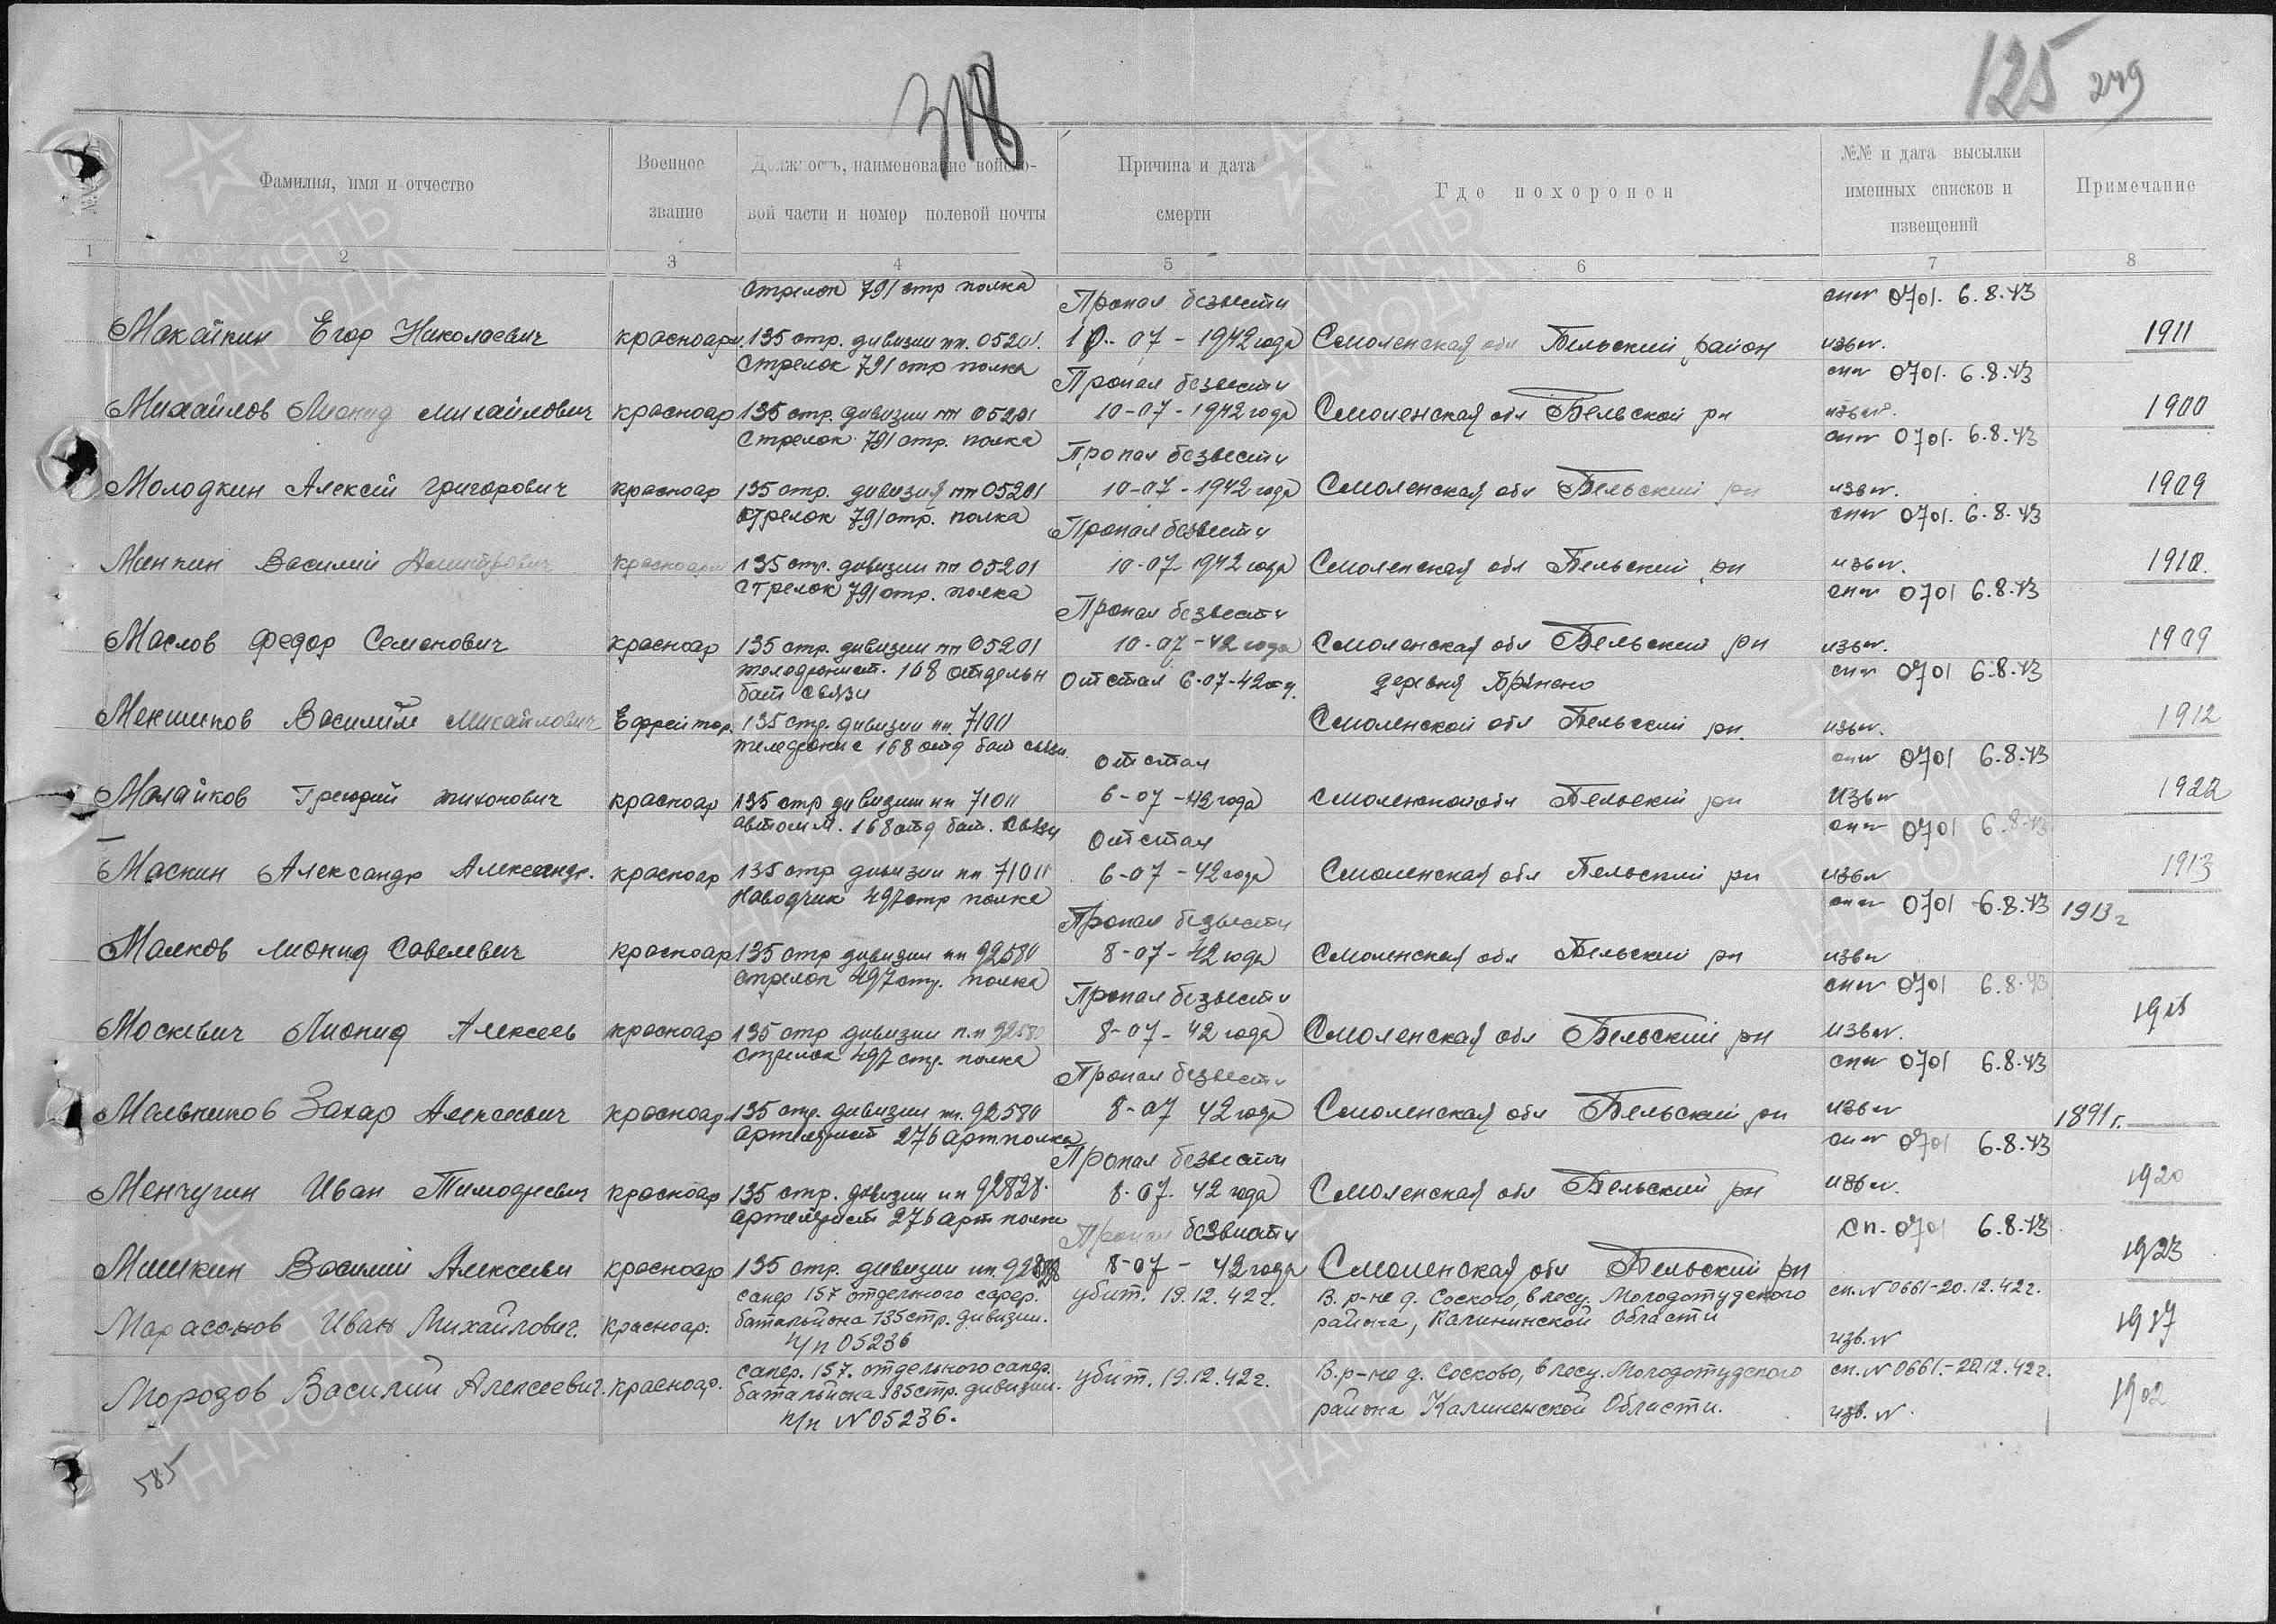 318
125 279
Фамилия, имя и отчество
Военное звание
Должность, наименование войско-
вой части и номер полевой почты
Причина и дата
смерти
Где похоронен
№№ и дата высылки
именных списков и
извещений
Примечание
1 2 3 4 5 6 7 8
Стрелок 791 стр полка Пропал безвести спи 0701. 6.8.43
Макайкин Егор Николаевич красноарм. 135 стр. дивизии пп. 05201. 10-07-1942 года Смоленская обл Бельский район изв №. 1911
Стрелок 791 стр полка Пропал безвести сп № 0701. 6.8.43
Михайлов Лионид Михайлович красноар 135 стр. дивизии пп 05201 10-07-1942 года Смоленская обл Бельской рн изв №. 1900
Стрелок 791 стр. полка Пропал безвести сп № 0701. 6.8.43
Молодкин Алексей Григорович красноар 135 стр. дивизия пп 05201 10-07-1942 года Смоленская обл Бельский рн изв №. 1909
стрелок 791 стр. полка Пропал безвести сп № 0701. 6.8.43
Василий красноарм 135 стр. дивизии пп 05201 10-07-1942 года Смоленская обл Бельский рн изв №. 1910.
Стрелок 791 стр. полка Пропал безвести сп № 0701 6.8.43
Маслов Федор Семенович красноар 135 стр. дивизии пп 05201 10-07-42 года Смоленская обл Бельский рн изв №. 1909
телефонист. 168 отдельн Отстал 6-07-42 деревня сп № 0701 6.8.43
бат связи
Меншиков Василий Михайлович Ефрейтор. 135 стр. дивизии пп. 71011 Смоленской обл Бельский рн. изв №. 1912
телефонис 168 отд бат связи. отстал сп № 0701 6.8.43
Малайков Грегорий тихонович красноар 135 стр дивизии пп 71011 6-07-42 года Смоленской обл Бельский рн Изв № 1922
автом М. 168 отд бат. связи отстал сп № 0701 6.8.43
Маскин Александр Александр. красноар 135 стр дивизии пп 71011 6-07-42 года Смоленская обл Бельский рн изв № 1913
Наводчик 497 стр полка Пропал безвести сп № 0701 6.8.43 1913 г
Малков Лионид Савелевич красноар 135 стр дивизии пп 92580 8-07-42 года Смоленская обл Бельский рн изв №
стрелок 497 стр. полка Пропал безвести сп № 0701 6.8.43
Москевич Лионид Алексеев красноар 135 стр дивизии п.п 92580 8-07-42 года Смоленская обл Бельский рн изв №.
стрелок 497 стр. полка Пропал безвести сп № 0701 6.8.43
Мельников Захар Алексевич красноар 135 стр. дивизии пп. 92580 8-07 42 года Смоленская обл Бельский рн изв № 1891 г.
артелерист 276 арт. полка Пропал безвести сп № 0701 6.8.43
Менчугин Иван Тимофиевич красноар 135 стр. дивизии пп 92828. 8.07. 42 года Смоленская обл Бельский рн изв №. 1920
артелерист 276 арт полка Пропал безвиоти сп. 0701 6.8.43
Мишкин Василий Алексееви красноар 135 стр. дивизии пп. 8-07-42 года Смоленская обл Бельский рн 1923
сапер 157 отдельного сапер. убит. 19.12.42 г. В. р-не д. Соского, в лесу. Молодотудского сп. № 0661-20.12.42 г.
Иван Михайлович. красноар. батальйона 135 стр. дивизии. района, Калининской Области изв. № 1917
п/п 05236
сапер. 157. отдельного сапер. убит. 19.12.42 г. В. р-не д. Сосково, в лесу Молодотудского сп. № 0661.-20.12.42 г.
Морозов Василий Алексеевич. красноар. батальйона 135 стр. дивизии. района Калиненской Области. изв. №. 1902
п/п № 05236.
585
ПАМЯТЬ НАРОДА